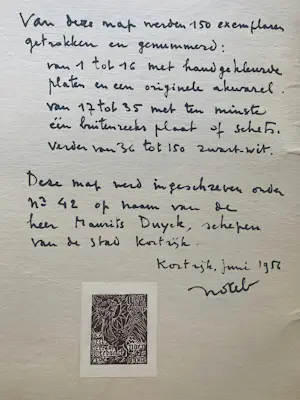 Van deze map werden 150 exemplaren
getrokken en genummerd:
van 1 tot 16 met handgekleurde
platen en een originele akwarel.
van 17 tot 35 met ten minste
één buitenreeks plaat of schets.
Verder van 36 tot 150 zwart-wit.
Deze map werd ingeschreven onder
nr 42 op naam van de
heer Maurits Duyck, schepen
van de stad Kortrijk.
Kortrijk, juni 1956